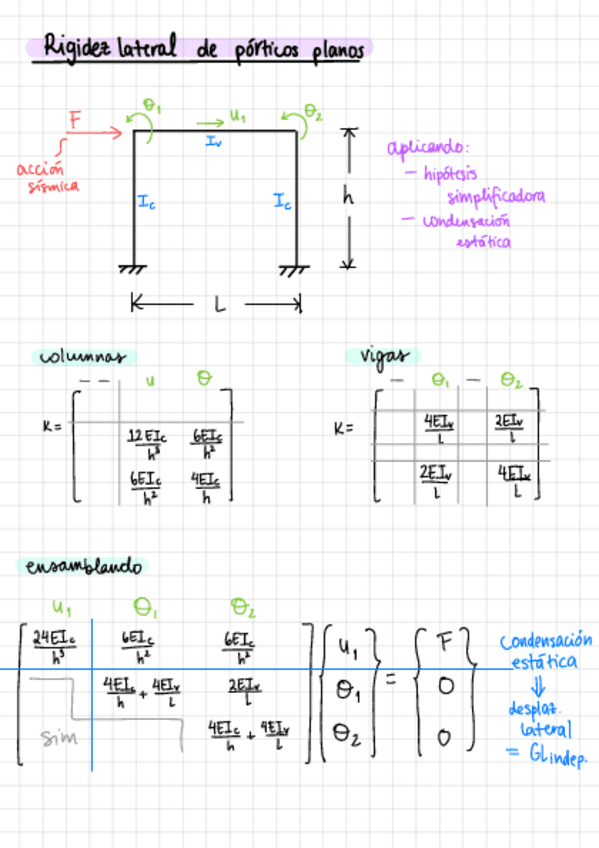 Rigidez lateral de pórticos planos
θ₁ u₁ θ₂
F
Iv
acción
sísmica
Ic Ic
h
L
aplicando:
- hipótesis
simplificadora
- condensación
estática
columnas
-- u θ
K=
12EIc/h³ 6EIc/h²
6EIc/h² 4EIc/h
vigas
- θ₁ - θ₂
K=
4EIv/L 2EIv/L
2EIv/L 4EIv/L
ensamblando
u₁ θ₁ θ₂
24EIc/h³ 6EIc/h² 6EIc/h² u₁ F
4EIc/h + 4EIv/L 2EIv/L θ₁ = 0
sim 4EIc/h + 4EIv/L θ₂ 0
Condensación
estática
⇓
desplaz.
lateral
= GL indep.